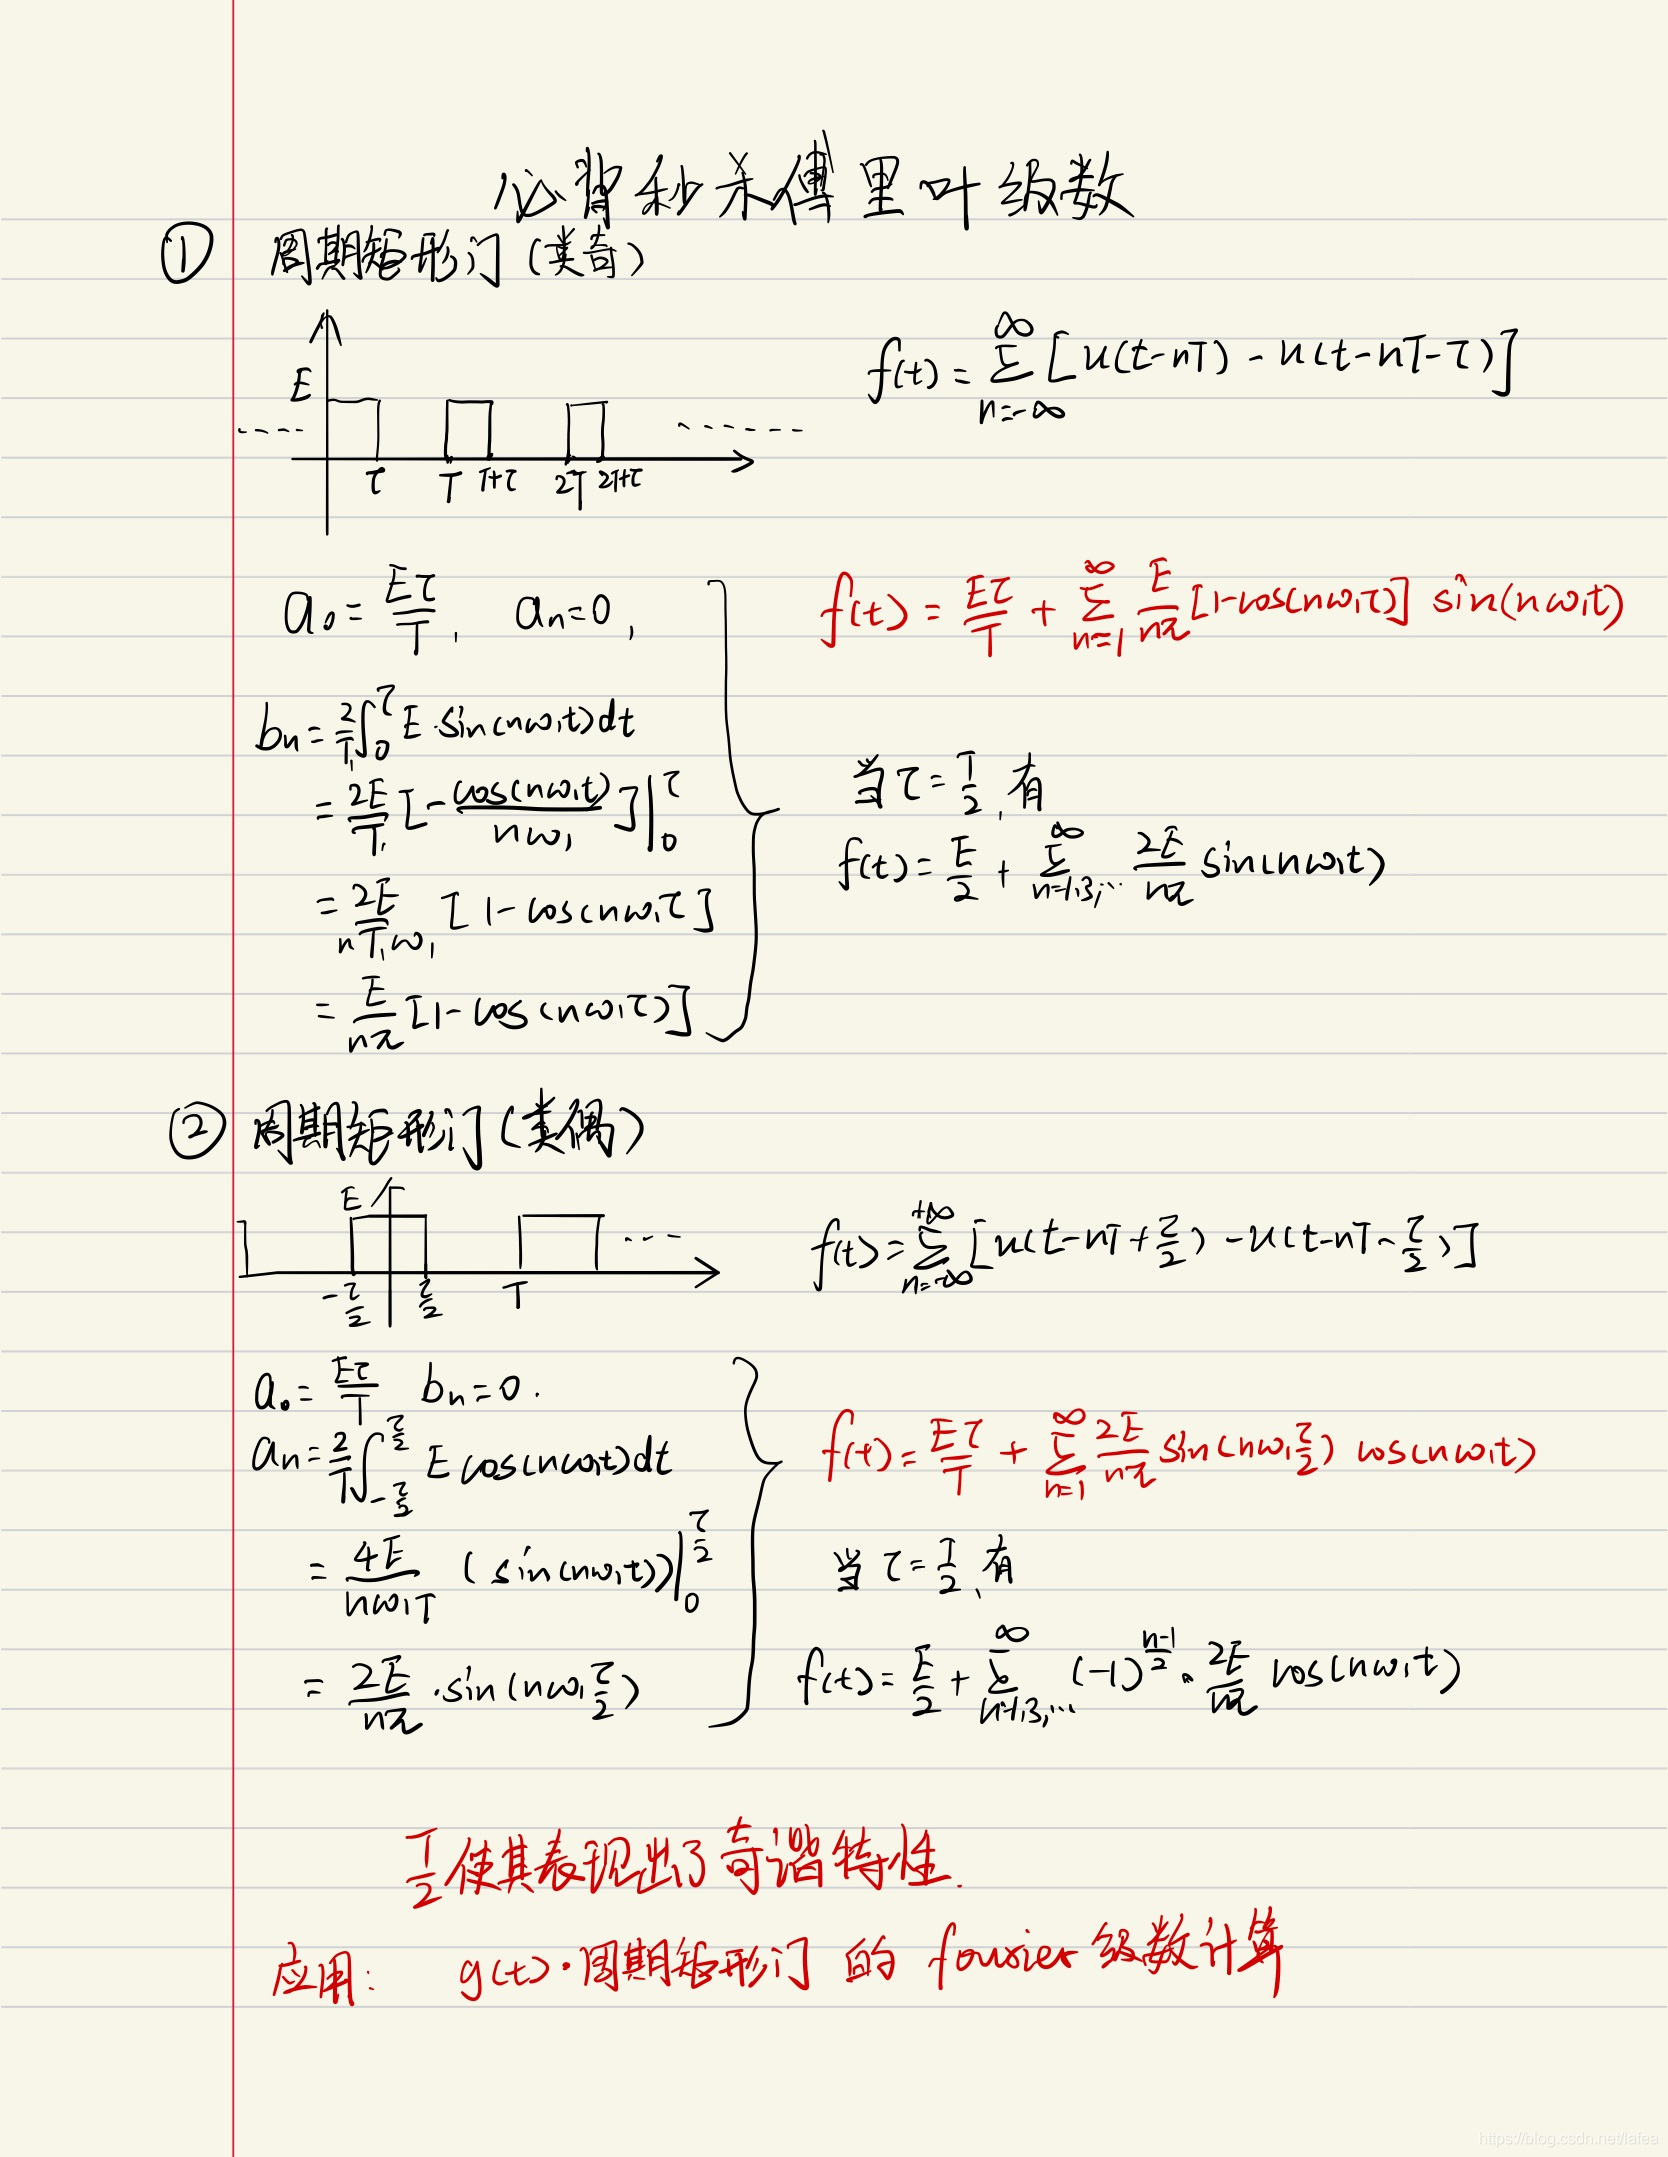 必背秒杀傅里叶级数
① 周期矩形门(类奇)
E
τ T T+τ 2T 2T+τ
f(t) = ∑_{n=-∞}^{∞} [u(t-nT) - u(t-nT-τ)]
a₀ = Eτ/T₁, aₙ=0,
f(t) = Eτ/T + ∑_{n=1}^{∞} E/nπ [1-cos(nω₁τ)] sin(nω₁t)
bₙ = 2/T₁ ∫₀^τ E·sin(nω₁t)dt
= 2E/T₁ [-cos(nω₁t)/nω₁]|₀^τ
= 2E/nT₁ω₁ [1-cos(nω₁τ]
= E/nπ [1-cos(nω₁τ)]
当τ=T/2,有
f(t) = E/2 + ∑_{n=1,3,…}^{∞} 2E/nπ sin(nω₁t)
② 周期矩形门(类偶)
E
-τ/2 τ/2 T
f(t) = ∑_{n=-∞}^{+∞} [u(t-nT+τ/2) - u(t-nT-τ/2)]
a₀ = Eτ/T bₙ=0.
aₙ = 2/T ∫_{-τ/2}^{τ/2} E cos(nω₁t)dt
= 4E/nω₁T (sin(nω₁t))|₀^{τ/2}
= 2E/nπ ·sin(nω₁τ/2)
f(t) = Eτ/T + ∑_{n=1}^{∞} 2E/nπ sin(nω₁τ/2) cos(nω₁t)
当τ=T/2,有
f(t) = E/2 + ∑_{n=1,3,…}^{∞} (-1)^{(n-1)/2}·2E/nπ cos(nω₁t)
T/2使其表现出了奇谐特性.
应用: g(t)·周期矩形门 的 fourier 级数计算
https://blog.csdn.net/lafea